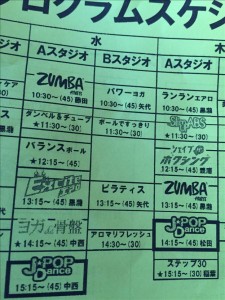 プログラムスケジ
水
木
スタジオ
Aスタジオ
Bスタジオ
Aスタジオ
ZUMBA
10:30～(45) 藤田
パワーヨガ
10:30～(45) 矢代
ランランエアロ
10:30～(45) 黒瀬
ダンベル&チューブ
★11:30～(30)
ボールですっきり
11:30～(30)
バランスボール
12:15～(45) 黒瀬
シェイプ
ボクシング
13:15～(45) 黒瀬
ピラティス
13:15～(45) 矢代
ZUMBA
13:15～(45) 黒瀬
ヨガ 骨盤
★14:15～(45) 中西
アロマリフレッシュ
14:30～(30)
J-POP
Dance
14:15～(45) 松田
J-POP
Dance
15:15～(45) 中西
ステップ30
★15:15～(30) 稲葉